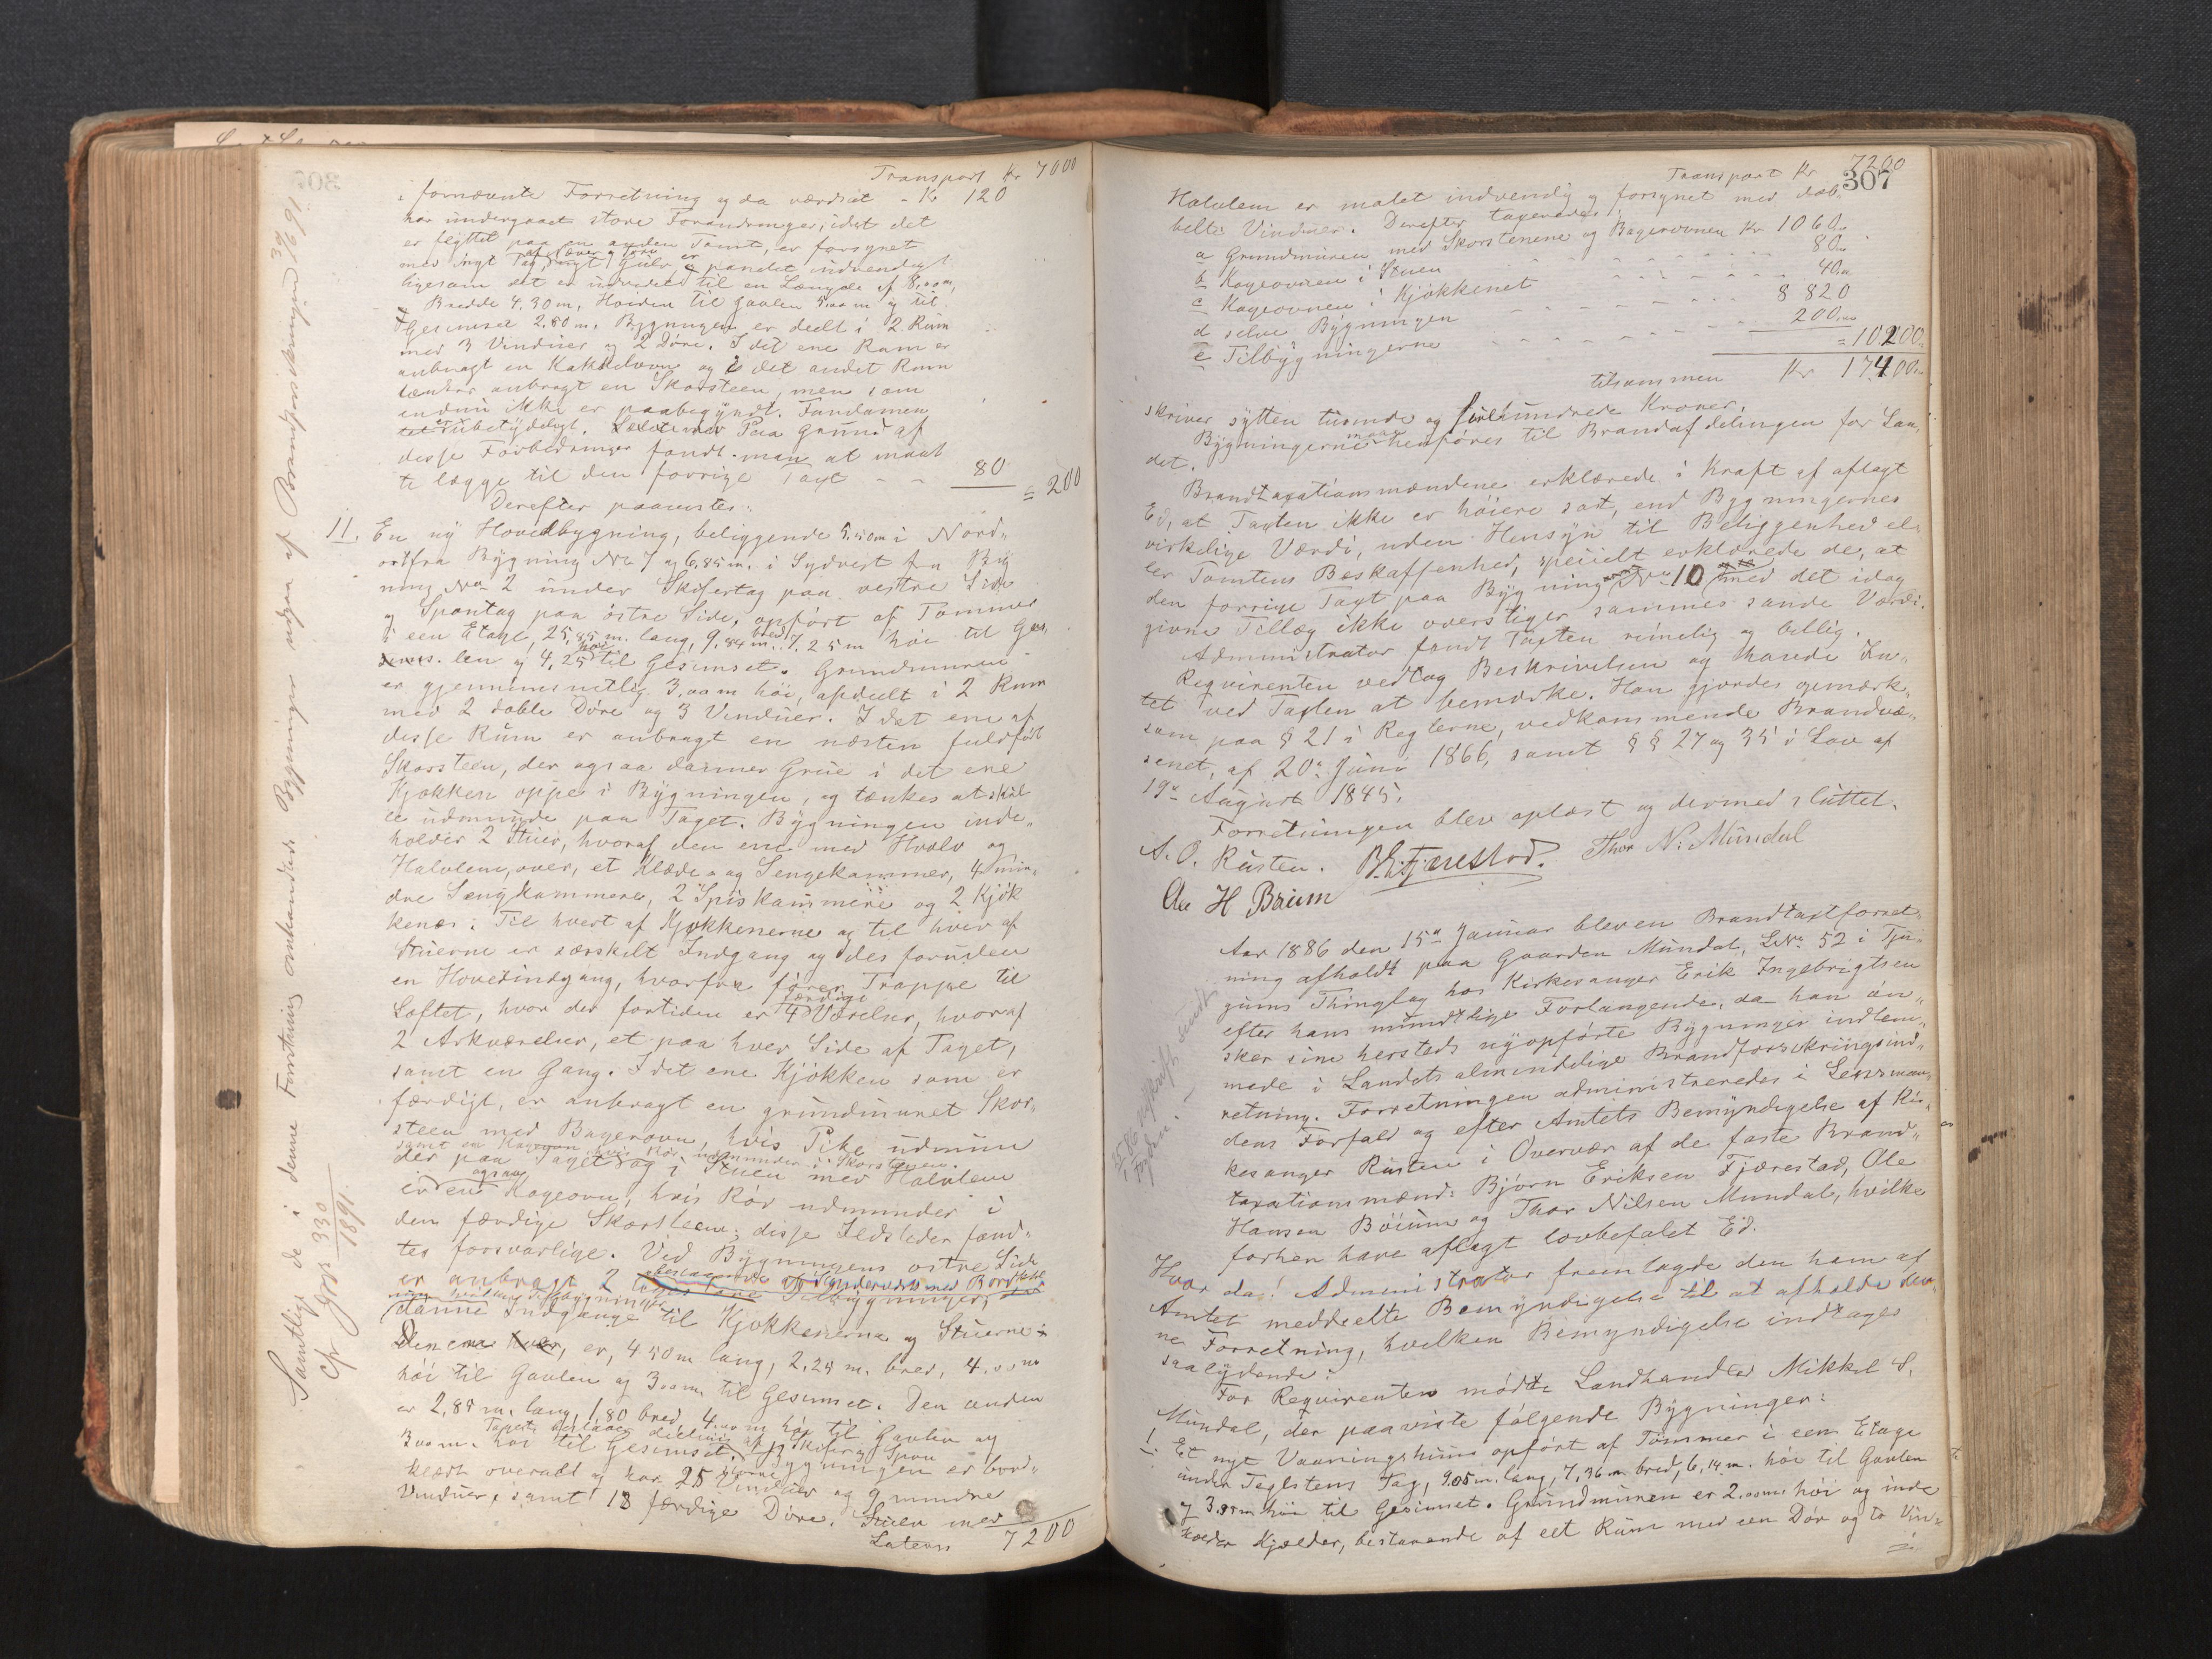 Transport Kr 7000
i fornævnte Forretning og da værdsat - Kr 120
har undergaaet store Forandringer, idet det
er flyttet paa en anden Tomt, er forsynet
med nyt Tag, nyt Gulv, er panelet indvendigt
ligesom det er udvidet til en Længde af 8,00 m,
Bredde 4,30 m, Høiden til Gavlen 5,00 m og til
Gesimset 2.80 m. Bygningen er deelt i 2 Rum
med 3 Vinduer og 2 Døre. I det ene Rum er
anbragt en Kakkelovn og i det andet Rum
tænkes anbragt en Skorsteen, men som
endnu ikke er paabegyndt. Fundamen
tet er ubetydeligt. Paa Grund af
disse Forbedringer fandt man at maat
te lægge til den forrige Taxt - - 80
= 200
Derefter paavistes:
11. En ny Hovedbygning, beliggende 5.50m i Nord-
ost fra Bygning No 7 og 6.85 m. i Sydvest fra Byg
ning No 2 under Skifertag paa vestre Side
og Spontag paa østre Side, opført af Tømmer
i een Etage, 25,85 m. lang, 9,84 m. bred, 7,25 m høi til Gav
len og 4,25 høi til Gesimset. Grundmuren
er gjennemsnitlig 3,00 m høi, afdeelt i 2 Rum
med 2 doble Døre og 3 Vinduer. I det ene af
disse Rum er anbragt en næsten fuldført
Skorsteen, der ogsaa danner Grue i det ene
Kjøkken oppe i Bygningen, og tænkes at skul
le udmunde paa Taget. Bygningen inde-
holder 2 Stuer, hvoraf den ene med Hvælv og
Halvlem over, et Klæde- og Sengekammer, 4 min-
dre Sengkammere, 2 Spiskammere og 2 Kjøk
kener. Til hvert af Kjøkkenerne og til hver af
Stuerne er særskilt Indgang og des foruden
en Hovedindgang, hvorfra fører Trappe til
Loftet, hvor der fortiden er 4 færdige Værelser, hvoraf
2 Arkværelser, et paa hver Side af Taget,
samt en Gang. I det ene Kjøkken som er
færdigt, er anbragt en grundmuret Skor-
steen med Bagerovn, hvis Pibe udmun
der paa Taget samt en Kogeovn hvis Rør udmunder i Skorstenen.
og i Stuen med Halvlem
er ogsaa en Kogeovn, hvis Rør udmunder i
den færdige Skorsteen; disse Ildsteder fand-
tes forsvarlige. Ved Bygningens østre Side
er anbragt 2 Tilbygninger,
danne Indgange til Kjøkkenerne og Stuerne.
Den ene er, 4.50 m lang, 2,25 m. bred, 4.00 m
høi til Gavlen og 3.00 m. til Gesimset. Den anden
er 2,85 m. lang, 1,80 bred 4,00 m høi til Gavlen og
3.00 m. høi til Gesimset. Bygningen er bord-
klædt overalt og har 25 større Vinduer og 9 mindre
Vinduer, samt 18 færdige Døre. Stuen med
Latens 7200
Samtlige de i denne Forretning omhandlede Bygninger udgaar af Brandforsikringen 30/6 91.
Cfr. Jor. 330/1891.
Transport Kr 7200
307
Halvlem er malet indvendig og forsynet med dob-
belte Vinduer. Derefter taxeredes
a Grundmuren med Skorstenene og Bagerovnen Kr 1060
b Kogeovnen i Stuen 80
c Kogeovnen i Kjøkkenet 40
d selve Bygningen 8 820
e Tilbygningerne 200
= 10200
tilsammen Kr 17400
skriver sytten tusinde og firehundrede Kroner.
Bygningerne maa henføres til Brandafdelingen for Lan
det.
Brandtaxationsmændene erklærede i Kraft af aflagt
Ed, at Taxten ikke er høiere sat, end Bygningernes
virkelige Værdi, uden Hensyn til Beliggenhed el-
ler Tomtens Beskaffenhed, specielt erklærede de, at
den forrige Taxt paa Bygning No 10 med det idag
givne Tillæg ikke overstiger sammes sande Værdi.
Administrator fandt Taxten rimelig og billig.
Reqvirenten vedtog Beskrivelsen og havde In-
tet ved Taxten at bemærke. Han gjordes opmærk-
som paa § 21 i Reglerne, vedkommende Brandvæ-
senet, af 20de Juni 1866, samt §§ 27 og 35 i Lov af
19de August 1845.
Forretningen blev oplæst og dermed sluttet.
A. O. Rusten. B. E. Fjærestad. Thor N. Mundal
Ole H Bøium
Aar 1886 den 15de Januar blev en Brandtaxtforret-
ning afholdt paa Gaarden Mundal, LNo 52 i Fjær-
lands Thinglag hos Kirkesanger Erik Ingebrigtsen
efter hans mundtlige Forlangende, da han øn-
sker sine hersteds nyopførte Bygninger indlem-
mede i Landets almindelige Brandforsikringsind-
retning. Forretningen administreredes i Lensman-
dens Forfald og efter Amtets Bemyndigelse af Kir-
kesanger Rusten i Overvær af de faste Brand-
taxationsmænd: Bjørn Eriksen Fjærestad, Ole
Hansen Bøium og Thor Nilsen Mundal, hvilke
forhen have aflagt lovbefalet Ed.
Hvor da! Administrator fremlagde den ham af
Amtet meddeelte Bemyndigelse til at afholde den-
ne Forretning, hvilken Bemyndigelse indtages
saalydende:
For Reqvirenten mødte Landhandler Mikkel S.
Mundal, der paaviste følgende Bygninger:
1. Et nyt Vaaningshuus opført af Tømmer i een Etage
under Teglstens Tag, 9.05 m. lang, 7,36 m bred, 6,14 m. høi til Gavlen
og 3.85 m høi til Gesimset. Grundmuren er 2.00 m. høi og inde
holder Kjælder, bestaaende af eet Rum med een Dør og to Vin-